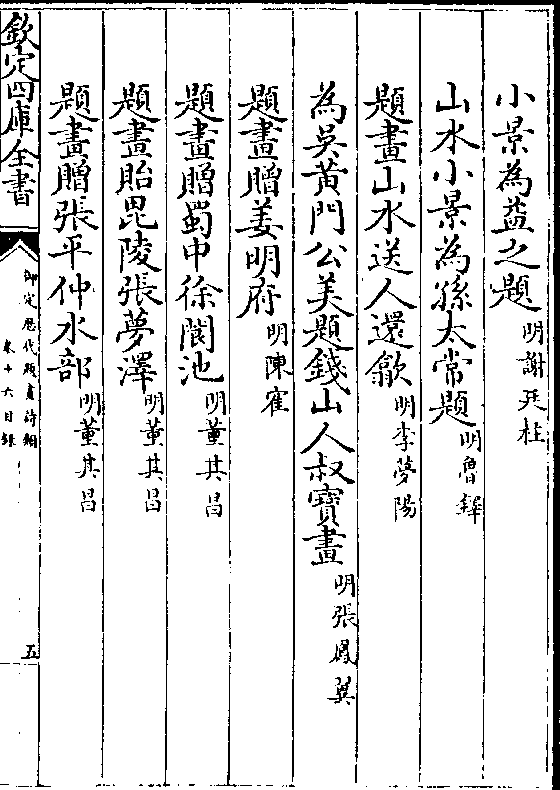 小景為益之題 明謝廷柱
山水小景為孫太常題 明魯鐸
題畫山水送人還歙 明李夢陽
為吳黃門公美題錢山人叔寶畫 明張鳳翼
題畫贈姜明府 明陳寉
題畫贈蜀中徐閬池 明董其昌
題畫貽毘陵張夢澤 明董其昌
題畫贈張平仲水部 明董其昌
欽定四庫全書
御定歷代題畫詩類
卷十六目錄
五